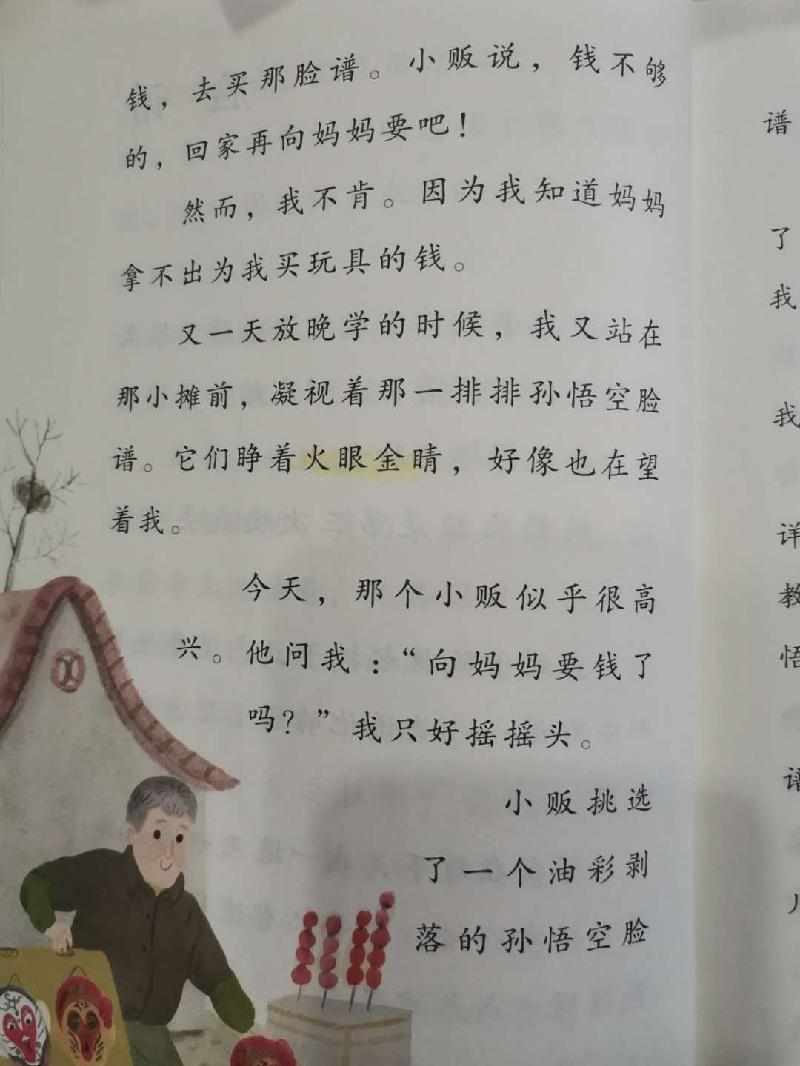 钱，去买那脸谱。小贩说，钱不够
的，回家再向妈妈要吧！
然而，我不肯。因为我知道妈妈
拿不出为我买玩具的钱。
又一天放晚学的时候，我又站在
那小摊前，凝视着那一排排孙悟空脸
谱。它们睁着火眼金睛，好像也在望
着我。
今天，那个小贩似乎很高
兴。他问我：“向妈妈要钱了
吗？”我只好摇摇头。
小贩挑选
了一个油彩剥
落的孙悟空脸
谱
了
我
我
详
教
悟
谱